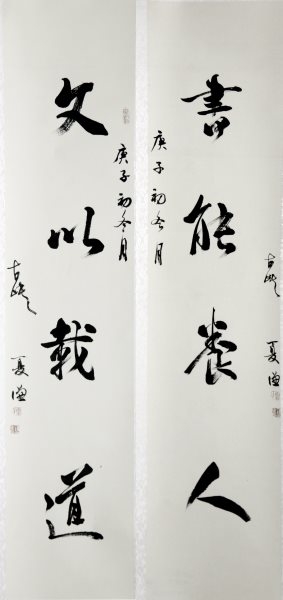 書能養人
庚子初冬月
古
夏
文以載道
庚子初冬月
古
夏